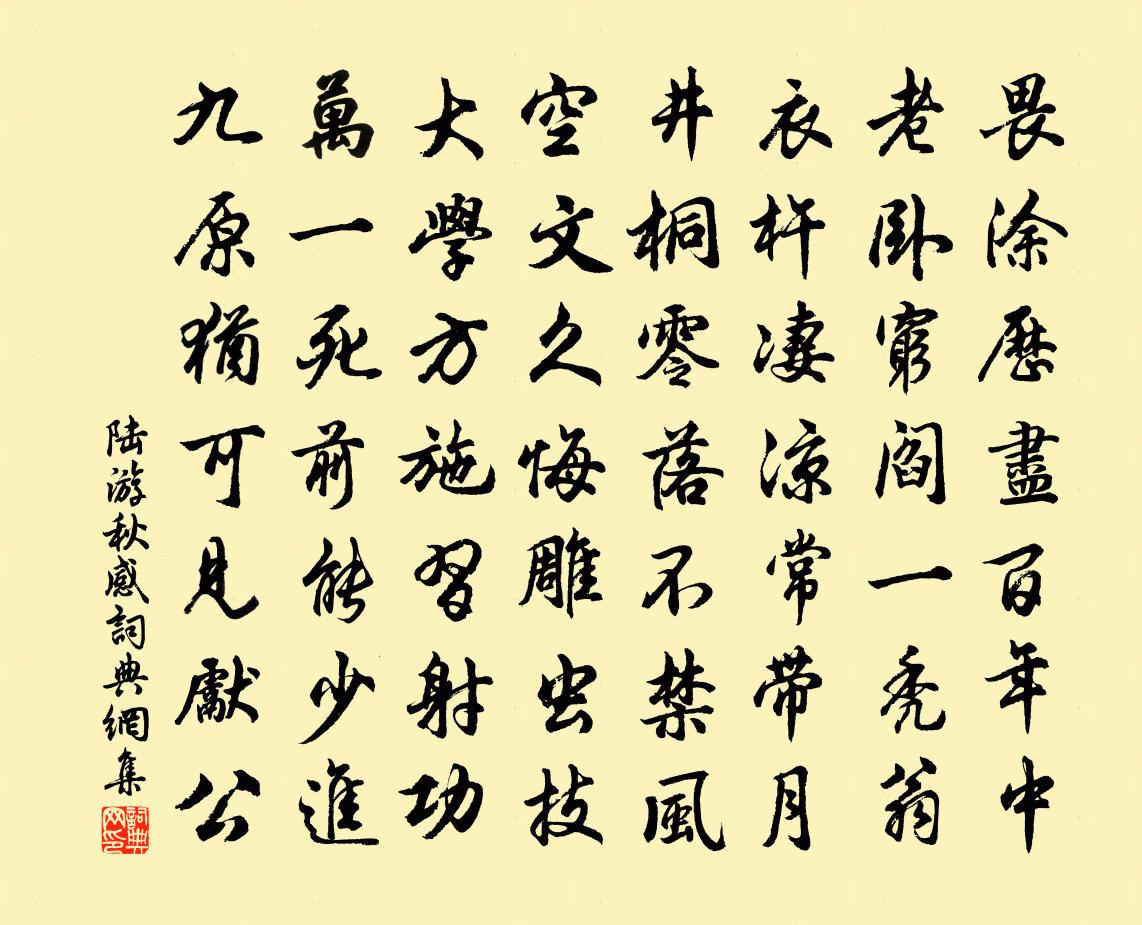 畏涂歷盡百年中
老臥窮閻一禿翁
衣杵凄涼常帶月
井桐零落不禁風
空文久悔雕虫技
大學方施習射功
萬一死前能少進
九原猶可見獻公
陸游秋感詞典網集
詞典网印